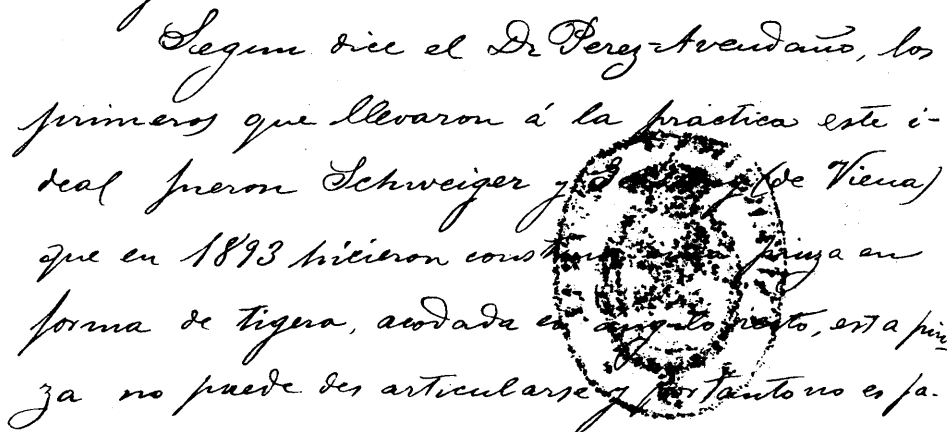 Segun dice el Dr Perez-Avendaño, los
primeros que llevaron á la práctica este i-
deal fueron Schweiger y (de Viena)
que en 1893 hicieron construir una pinza en
forma de tigera, acodada en angulo recto, esta pin
za no puede des articularse y por tanto no es fa-